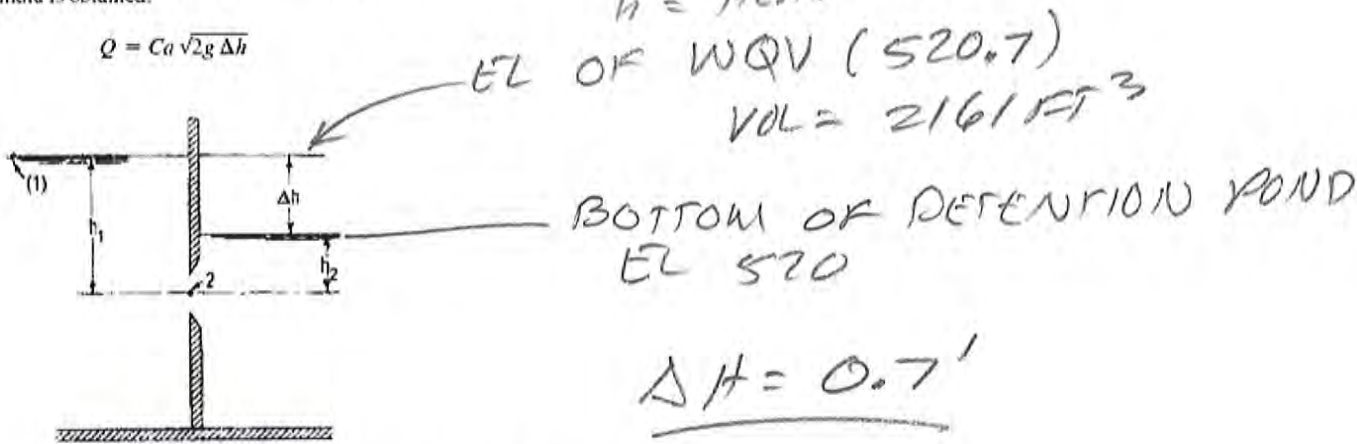 Q = Ca √2g Δh
EL OF WQV (520.7)
VOL = 2161 FT³
(1)
h₁
Δh
BOTTOM OF DETENTION POND
EL 520
h₂
2
ΔH = 0.7'